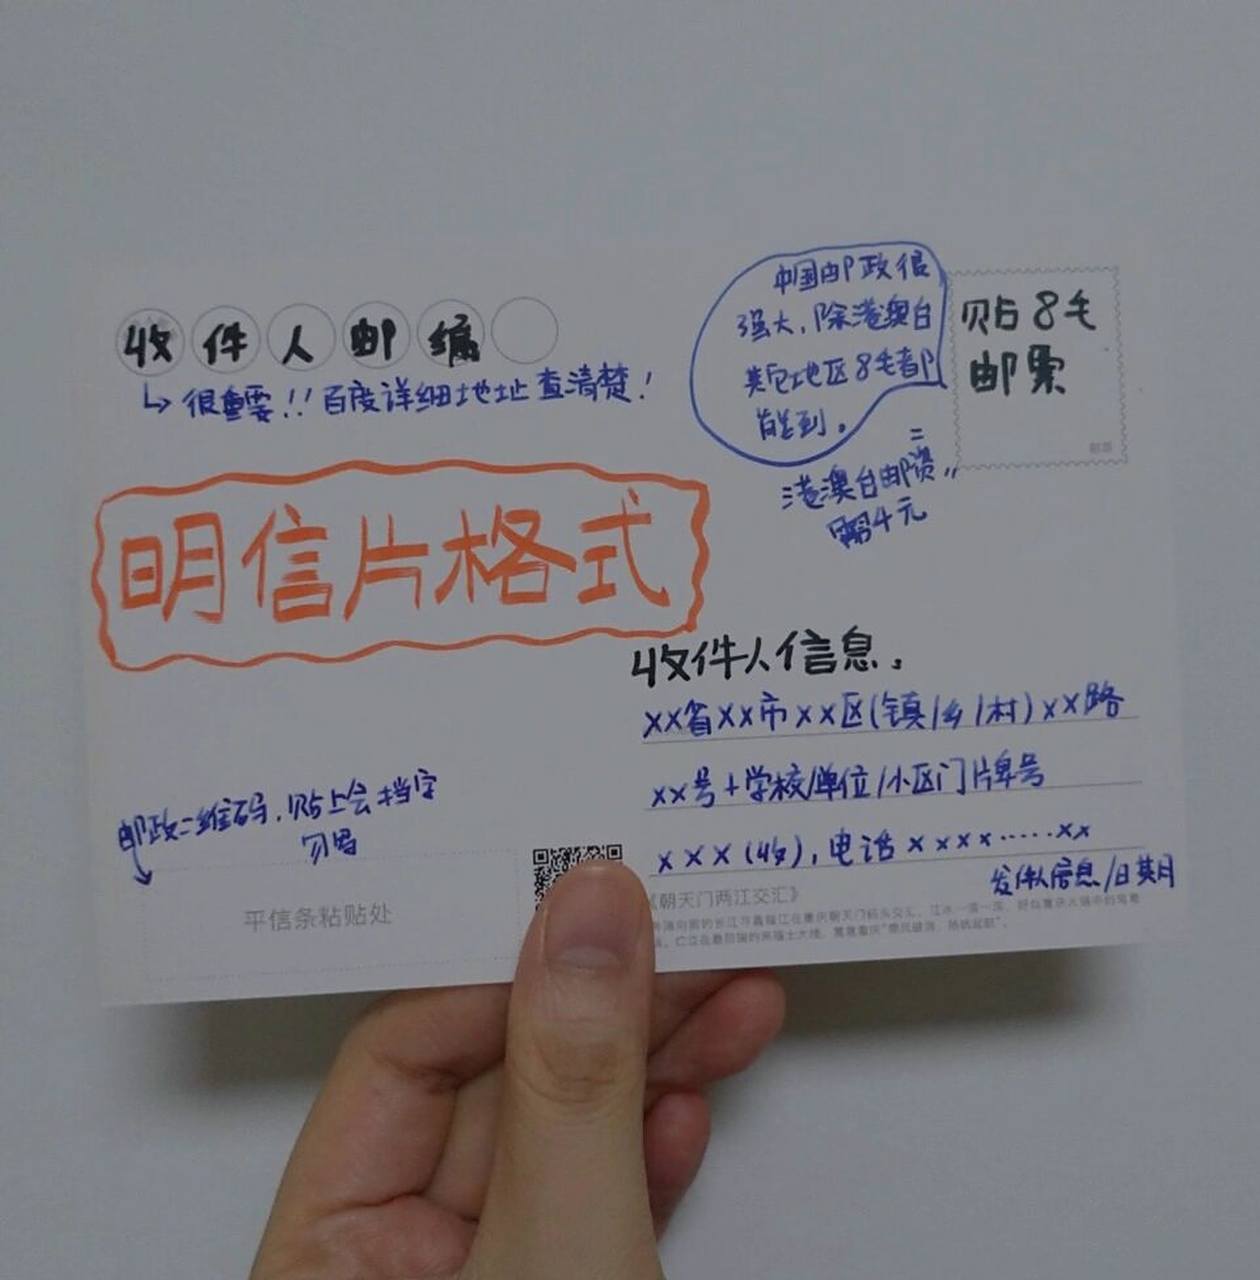 收件人邮编
↳很重要!!百度详细地址查清楚!
中国邮政很
强大,除港澳台
其它地区8毛都
能到。
贴8毛
邮票
邮票
港澳台邮资
需4元
明信片格式
收件人信息.
××省××市××区(镇/乡/村)××路
××号+学校/单位/小区门牌号
×××(收),电话××××……××
发件人信息/日期
邮政二维码,贴上会挡字
勿写
平信条粘贴处
《朝天门两江交汇》